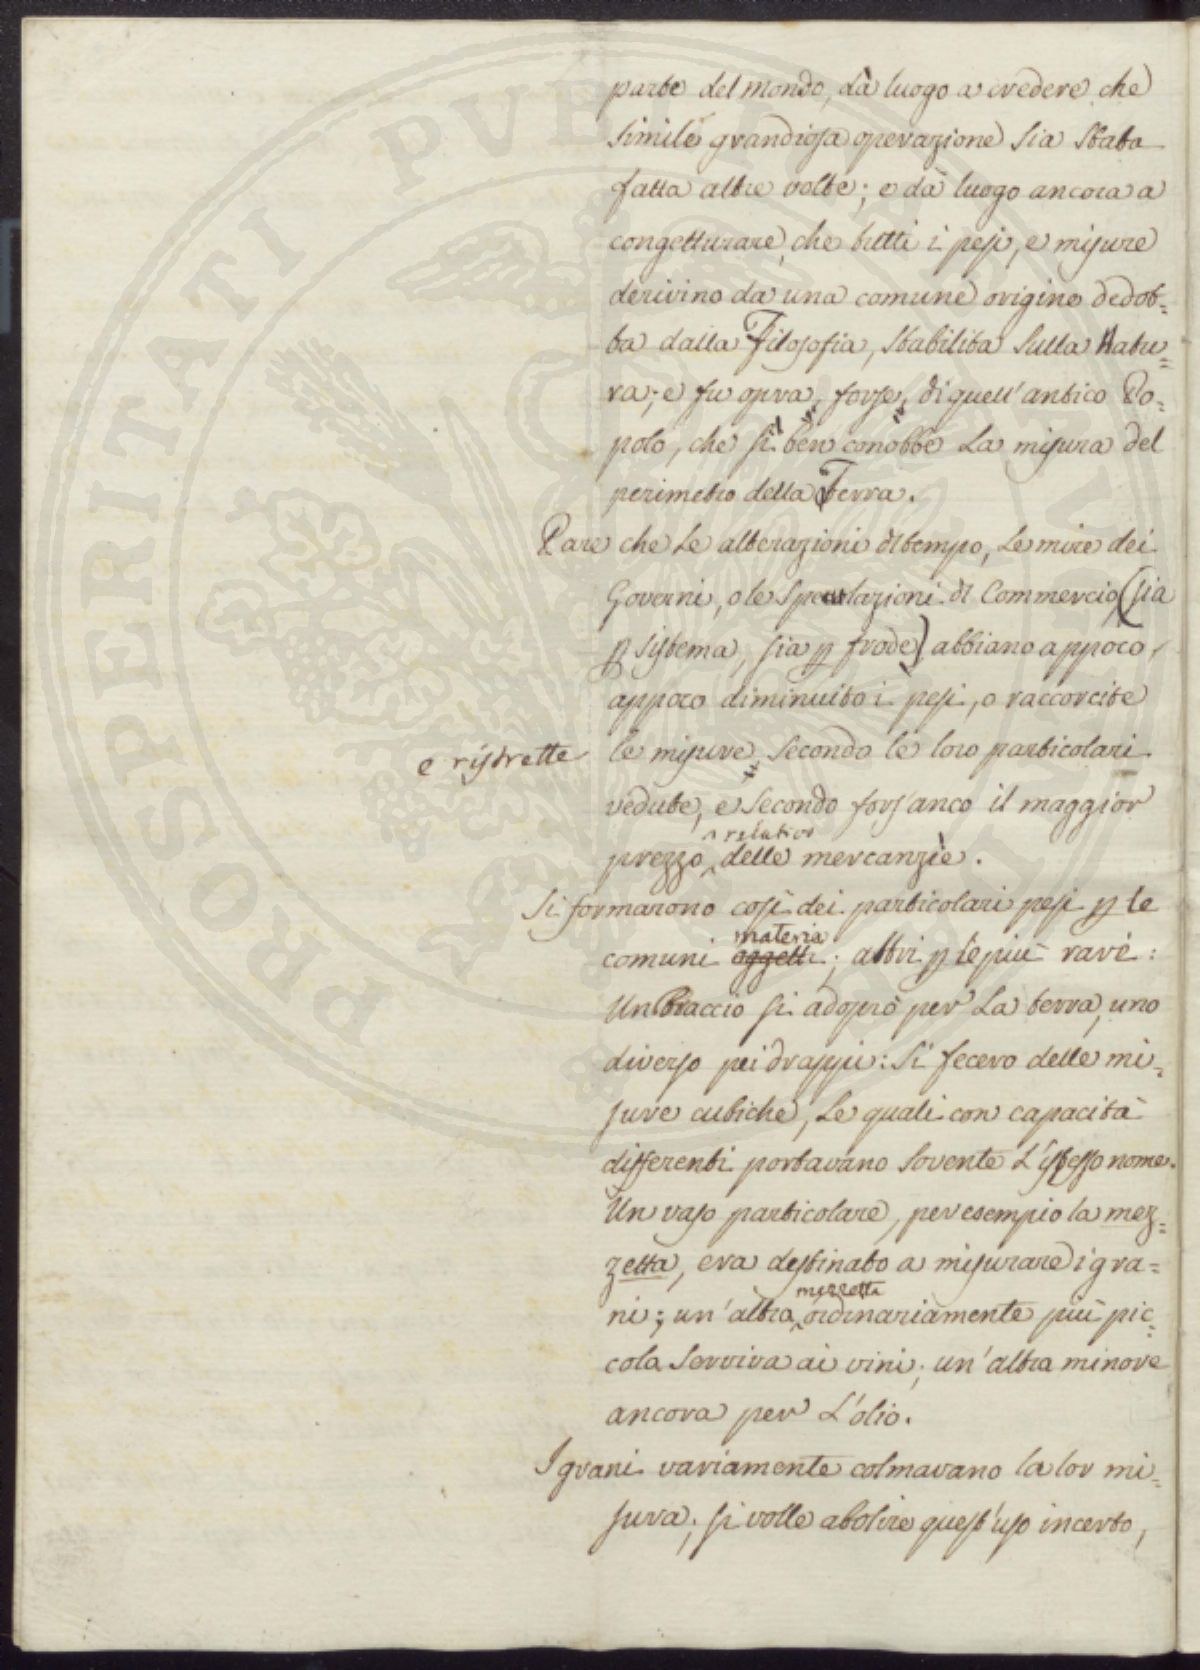 parte del mondo, dà luogo a credere che
simile grandiosa operazione sia stata
fatta altre volte; e dà luogo ancora a
congetturare, che tutti i pesi, e misure
derivino da una comune origine dedot=
ta dalla Filosofia, stabilita sulla Natu=
ra; e fu opra, forse, di quell'antico Po=
polo, che sì ben conobbe la misura del
perimetro della Terra.
Pare che le alterazioni di tempo, le mire dei
Governi, o le speculazioni di Commercio, (sia
p sistema, sia p frode) abbiano appoco,
appoco diminuito i pesi, o raccorcite
e ristrette
le misure, secondo le loro particolari
vedute, e secondo fors'anco il maggior
relativo
prezzo delle mercanzie.
Si formarono così dei particolari pesi p le
materia
comuni oggetti; altri p le più rare:
Un Braccio si adoprò per la terra, uno
diverso pei drappi: Si fecero delle mi=
sure cubiche, le quali con capacità
differenti portavano sovente l'istesso nome.
Un vaso particolare, per esempio la mez=
zetta, era destinato a misurare i gra=
mezzetta
ni; un'altra ordinariamente più pic=
cola serviva ai vini; un'altra minore
ancora per l'olio.
I grani variamente colmavano la lor mi=
sura; si volle abolire quest'uso incerto,
PROSPERITATI PVB